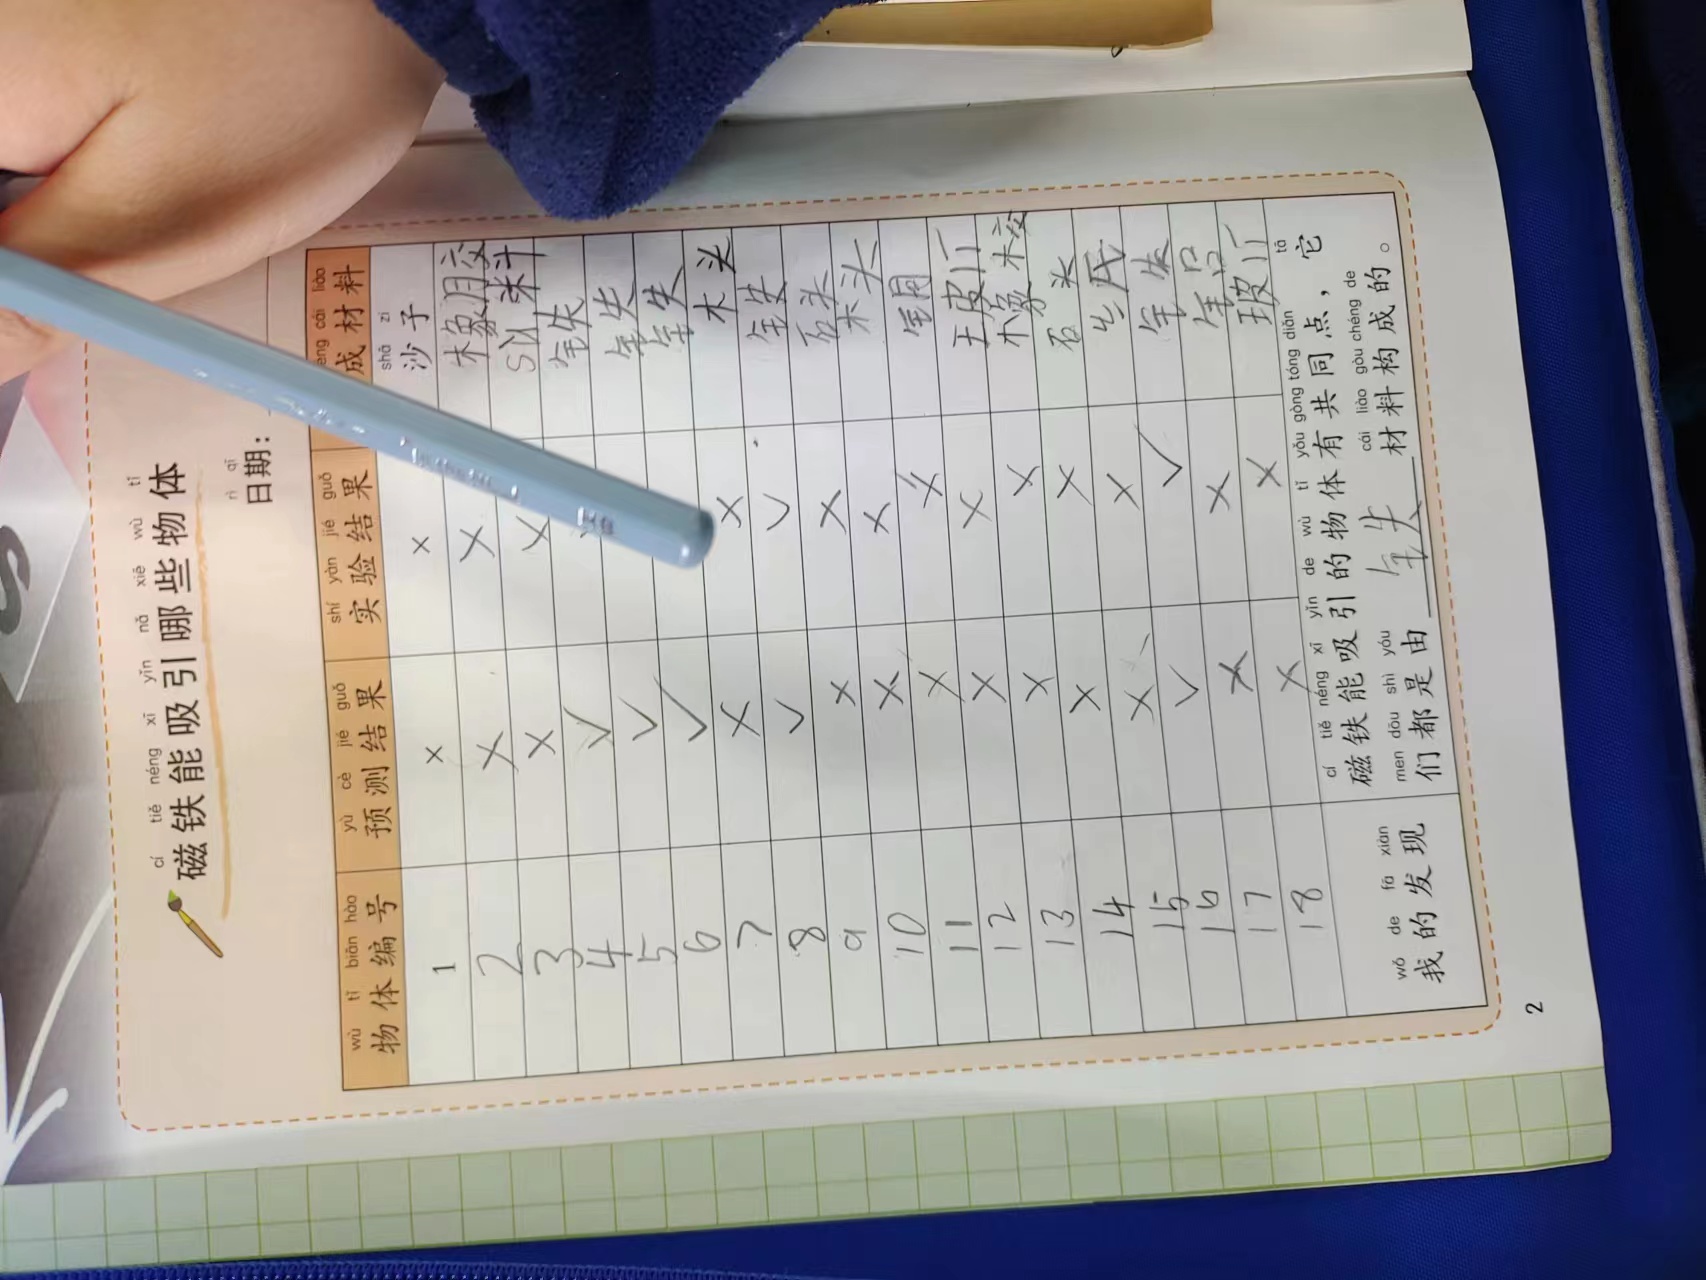 cí tiě néng xī yǐn nǎ xiē wù tǐ
磁铁能吸引哪些物体
rì qī
日期：
wù tǐ biān hào yù cè jié guǒ shí yàn jié guǒ cái liào
物体编号 预测结果 实验结果 成材料
shā zi
1 × × 沙子
2 × × 木象月交
3 × × SU料
4 √ 钅失
5 √ 钅失
6 √ 钅失
7 × × 木头
8 √ √ 钅失
9 × × 石头
10 × × 木头
11 × × 铜
12 × × 玻
13 × × 橡
14 × × 石头
15 × ×
16 √ √ 钅失
17 × × 铝
18 × × 玻
wǒ de fā xiàn
我的发现
cí tiě néng xī yǐn de wù tǐ yǒu gòng tóng diǎn tā
磁铁能吸引的物体有共同点，它
men dōu shì yóu cái liào gòu chéng de
们都是由 钅失 材料构成的。
2